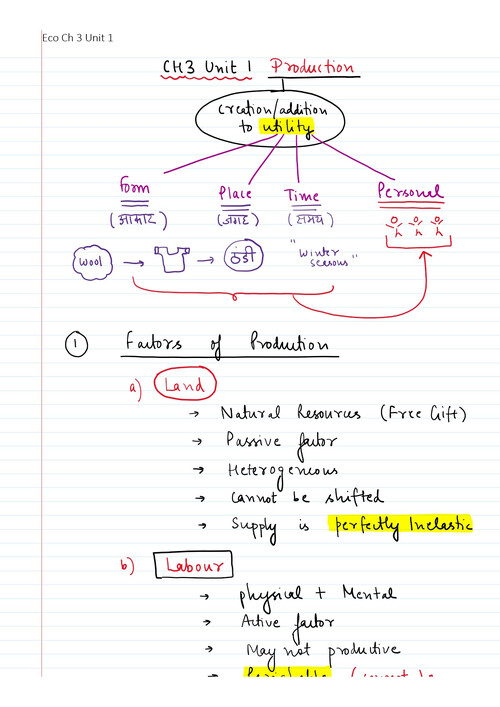 Eco Ch 3 Unit 1
CH3 Unit 1 Production
Creation/addition
to utility
Form Place Time Personal
(आकार) (जगह) (समय)
wool → → ठंडी "winter
seasons"
1 Factors of Production
a) Land
→ Natural Resources (Free Gift)
→ Passive factor
→ Heterogeneous
→ Cannot be shifted
→ Supply is perfectly Inelastic
b) Labour
→ physical + Mental
→ Active factor
→ May not productive
→ Perishable (cannot be